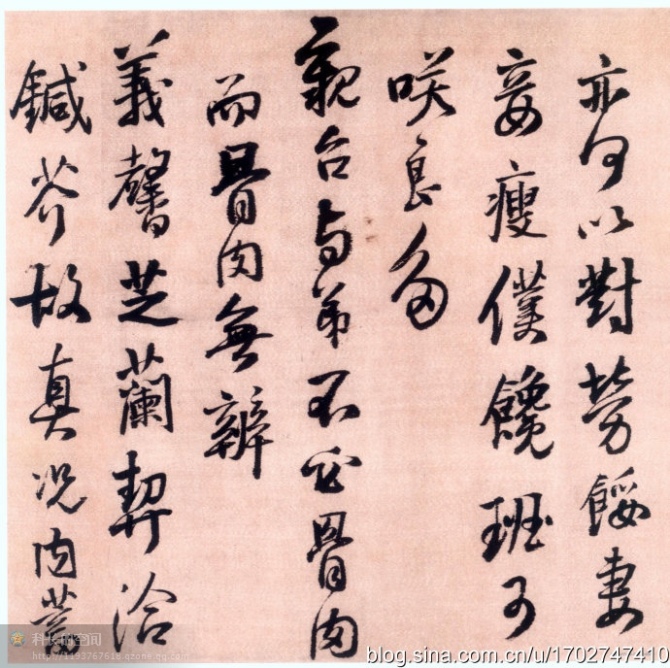 亦何以對勞餒妻
妾瘦僕饞班可
咲良多
親台与弟不必骨肉
而骨肉無辨
義馨芝蘭契洽
鍼芥故真况内
的空间
blog.sina.com.cn/u/1702747410